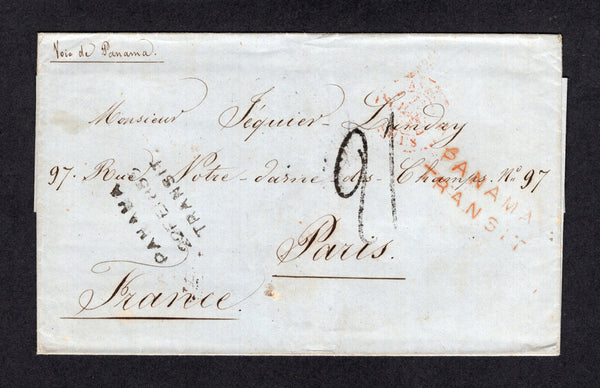 Voie de Panama.
Monsieur Jéquier-Landry
97. Rue Notre-dame-des-Champs. No. 97
Paris.
France.
21
PANAMA
TRANSIT
PANAMA
TRANSIT